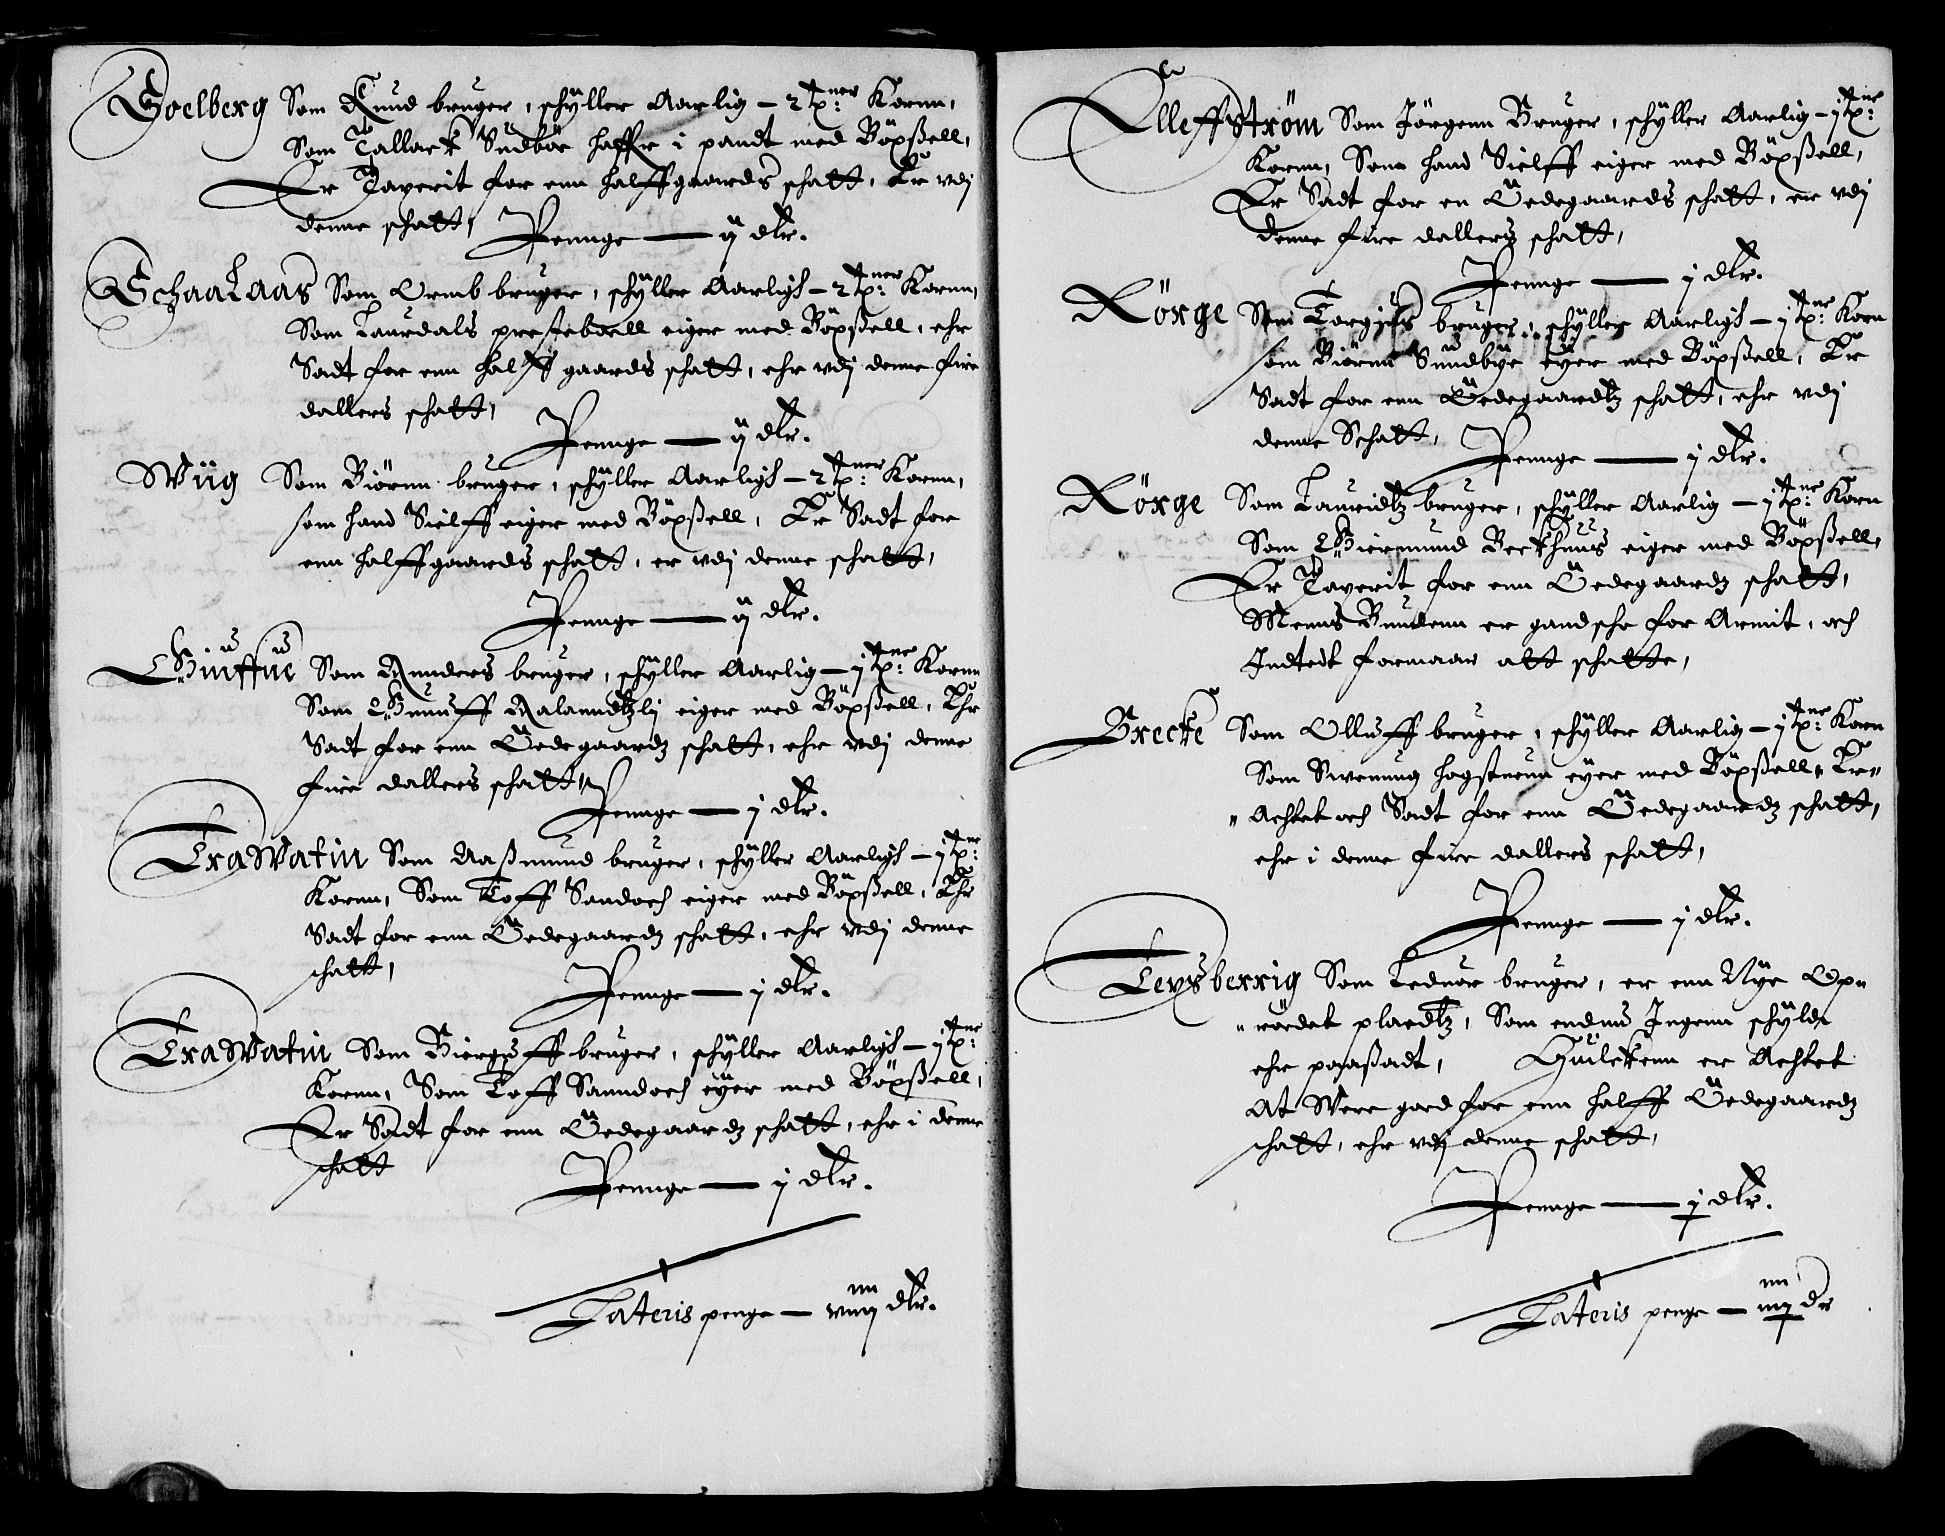 Goelberg Som Knud bruger, schÿller Aarlig – 2 tp:ner Kornn,
Som Tallack Sudbör haffr i pandt med Böxßell,
Er Taxerit for enn halffgaards schatt, Er vdj
denne schatt,
Pennge — ij dlr.
Schaalaas Som Ormb bruger, schÿller Aarligh – 2 tp:ner Kornn,
Som Laurdals presteboell eiger med Böxßell, ehr
Sadt for enn halff gaards schatt, ehr vdj denne fire
dallers schatt,
Pennge — ij dlr.
Wiig Som Biörnn bruger, schÿller Aarligh – 2 tp:ner Kornn,
som hand Sielff eiger med Böxßell, Er Sadt for
enn halffgaards schatt, er vdj denne schatt,
Pennge — ij dlr.
Som Anders bruger, schÿller Aarlig – j tp:ne Kornn
Som Gunuff eiger med Böxßell, Ehr
Sadt for enn Ödegaardz schatt, ehr vdj denne
fire dallers schatt,
Pennge — j dlr.
Trawatin Som Aaßmund bruger, schÿller Aarligh – j tp:ne
Kornn, Som Toff Sandoch eiger med Böxßell, Ehr
Sadt for enn Ödegaardz schatt, ehr vdj denne
schatt,
Pennge — j dlr.
Trawatin Som Biergulff bruger, schÿller Aarligh – j tp:ne
Kornn, Som Toff Sanndoch eÿer med Böxßell,
Er Sadt for enn Ödegaardz schatt, ehr i denne
schatt
Pennge — j dlr.
Lateris penge — viiij dlr.
Elleffström Som Jörgenn Bruger, schÿller Aarlig – j tp:ne
Kornn, Som hand Sielff eiger med Böxßell,
Er Sadt for en Ödegaards schatt, er vdj
denne fire dallers schatt,
Pennge — j dlr.
Rörge Som Torgiels bruger, schÿller Aarligh – j tp:ne Korn
som Biörnn Sundbÿe eÿer med Böxßell, Er
Sadt for enn Ödegaardtz schatt, ehr vdj
denne Schatt,
Pennge — j dlr.
Rörge Som Lauridtz bruger, schÿller Aarlig – j tp:ne Korn
Som Giermund Berkhuus eiger med Böxßell,
Er Taxerit for enn Ödegaardz schatt,
Menns Bundenn er gandsche for Armit, och
Indtedt formaar att schatte,
Brecke Som Olluff bruger, schÿller Aarlig – j tp:ne Korn
Som Swenung hogstuenn eÿer med Böxßell, Er
Achtet och Sadt for enn Ödegaardz schatt,
ehr i denne fire dallers schatt,
Pennge — j dlr.
Levsberrig Som Leduor bruger, er enn Nye Op=
=rördet pladtz, Som endnu Ingenn schÿldt
ehr paaßadt, Huilckenn er Achtet
At Were god for enn halff Ödegaardz
schatt, ehr vdj denne schatt,
Pennge — j dlr.
Lateris penge — iiij dr